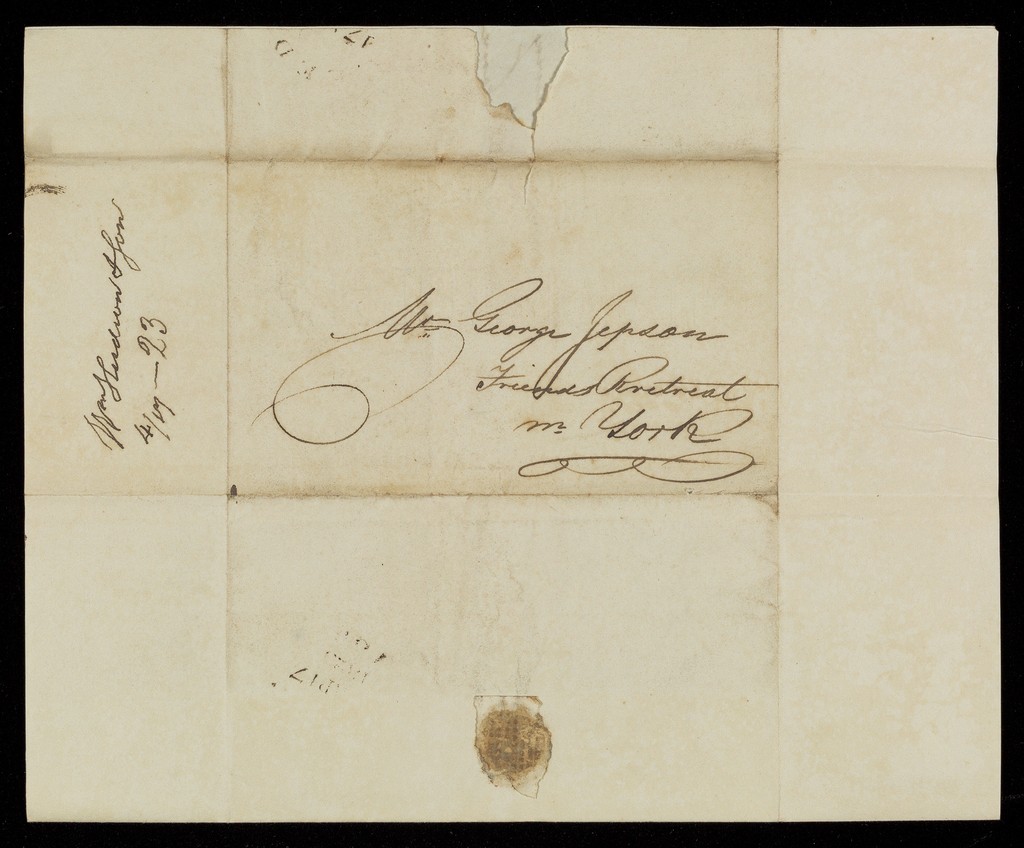 Mr George Jepson
Friends Retreat
nr York
Wm Hudson & Son
4/19-23